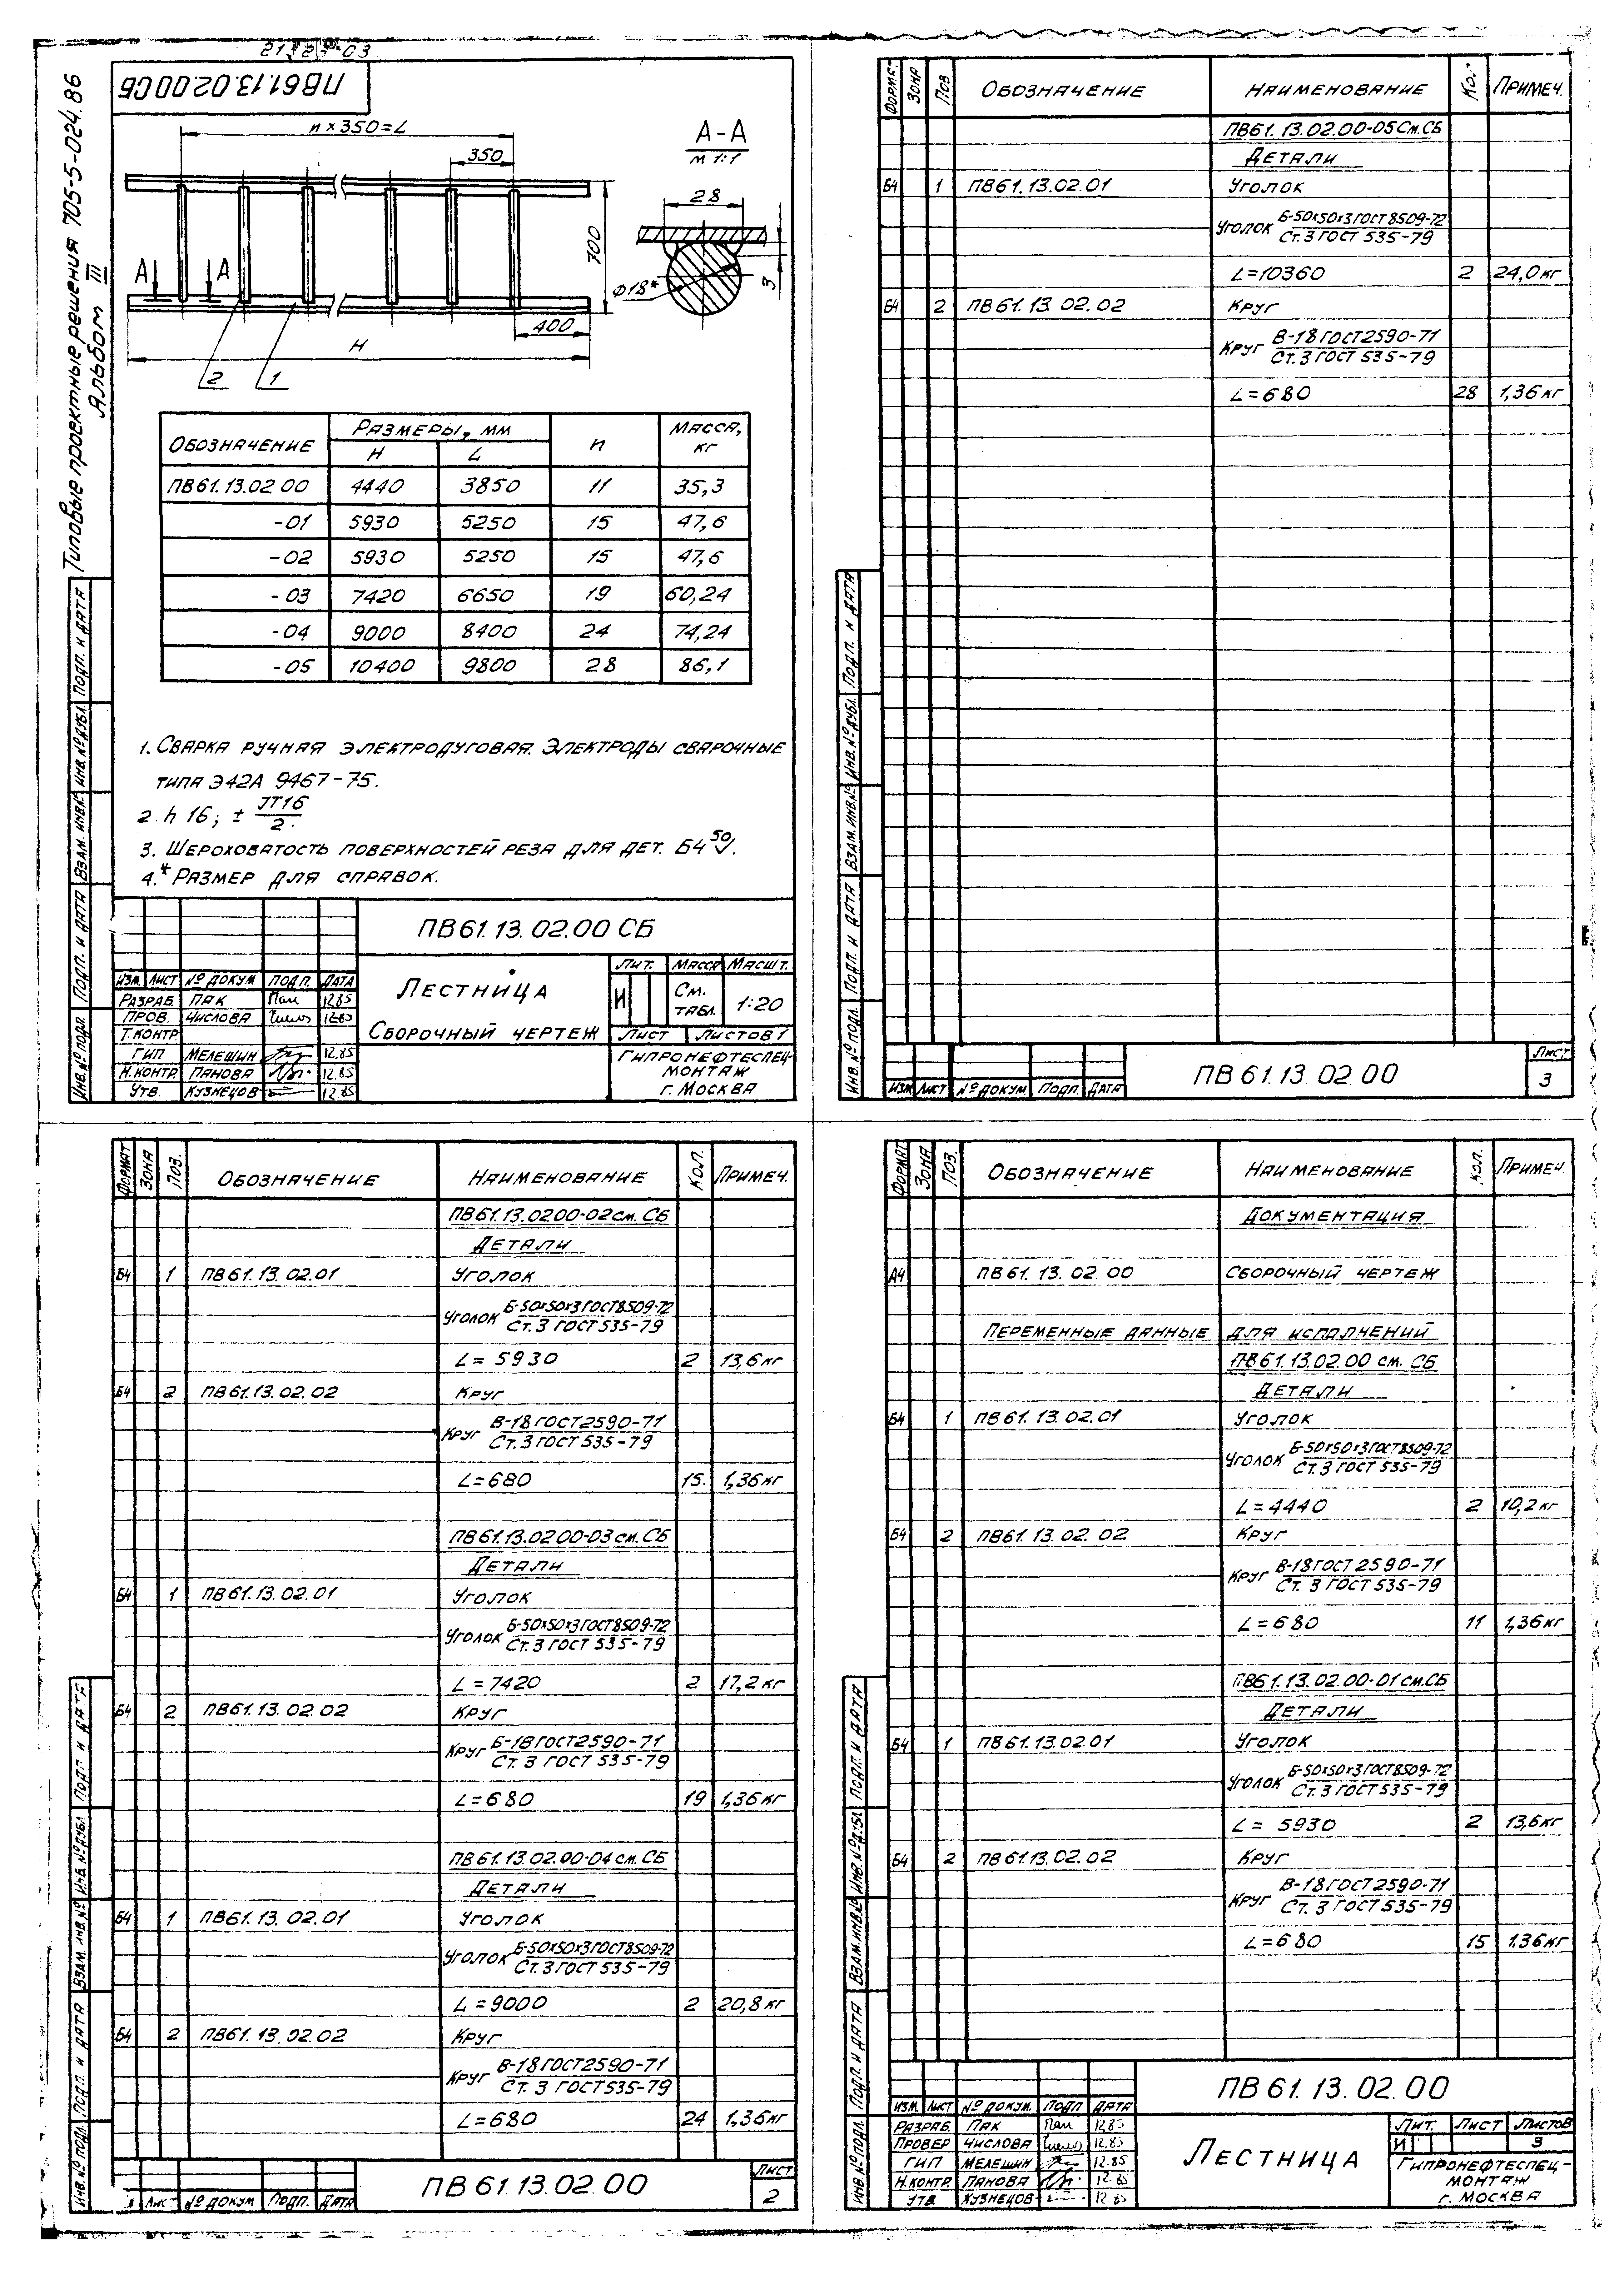 21323-03
ПВ61.13.02.00СБ
Типовые проектные решения 705-5-024.86
Альбом III
n×350=L
350
700
А
А
400
H
2
1
А-А
М 1:1
28
3
φ18*
Обозначение
Размеры, мм
n
Масса, кг
H
L
ПВ61.13.02.00 4440 3850 11 35,3
-01 5930 5250 15 47,6
-02 5930 5250 15 47,6
-03 7420 6650 19 60,24
-04 9000 8400 24 74,24
-05 10400 9800 28 86,1
1. Сварка ручная электродуговая. Электроды сварочные
типа Э42А 9467-75.
2. h 16; ± JT16/2.
3. Шероховатость поверхностей реза для дет. Б4 50√.
4.* Размер для справок.
ПВ61.13.02.00 СБ
Лестница
Сборочный чертеж
Лит. Масса Масшт.
И См. табл. 1:20
Лист Листов 1
Гипронефтеспец-
монтаж
г. Москва
Изм. Лист № докум Подп. Дата
Разраб. Пак 12.85
Пров. Числова 12.85
Т.контр
ГИП Мелешин 12.85
Н.контр. Панова 12.85
Утв. Кузнецов 12.85
Инв. № подл. Подп. и дата Взам. инв. № Инв. № дубл. Подп. и дата
Формат Зона Поз Обозначение Наименование Кол. Примеч.
ПВ61.13.02.00-05 См.СБ
Детали
Б4 1 ПВ61.13.02.01 Уголок
Уголок Б-50×50×3 ГОСТ 8509-72
Ст.3 ГОСТ 535-79
L=10360 2 24,0кг
Б4 2 ПВ61.13.02.02 Круг
Круг В-18 ГОСТ 2590-71
Ст.3 ГОСТ 535-79
L=680 28 1,36кг
Инв. № подл. Подп. и дата Взам. инв. № Инв. № дубл. Подп. и дата
Изм Лист № докум Подп. Дата
ПВ61.13.02.00
Лист
3
Формат Зона Поз. Обозначение Наименование Кол. Примеч.
ПВ61.13.0200-02 см. СБ
Детали
Б4 1 ПВ61.13.02.01 Уголок
Уголок Б-50×50×3 ГОСТ 8509-72
Ст.3 ГОСТ 535-79
L= 5930 2 13,6кг
Б4 2 ПВ61.13.02.02 Круг
Круг В-18 ГОСТ 2590-71
Ст.3 ГОСТ 535-79
L=680 15. 1,36кг
ПВ61.13.0200-03 см. СБ
Детали
Б4 1 ПВ61.13.02.01 Уголок
Уголок Б-50×50×3 ГОСТ 8509-72
Ст.3 ГОСТ 535-79
L=7420 2 17,2кг
Б4 2 ПВ61.13.02.02 Круг
Круг Б-18 ГОСТ 2590-71
Ст.3 ГОСТ 535-79
L=680 19 1,36кг
ПВ61.13.02.00-04 см. СБ
Детали
Б4 1 ПВ61.13.02.01 Уголок
Уголок Б-50×50×3 ГОСТ 8509-72
Ст.3 ГОСТ 535-79
L=9000 2 20,8кг
Б4 2 ПВ61.13.02.02 Круг
Круг В-18 ГОСТ 2590-71
Ст.3 ГОСТ 535-79
L=680 24 1,36кг
Инв. № подл. Подп. и дата Взам. инв. № Инв. № дубл. Подп. и дата
Лист № докум Подп. Дата
ПВ61.13.02.00
Лист
2
Формат Зона Поз. Обозначение Наименование Кол. Примеч
Документация
А4 ПВ61.13.02.00 Сборочный чертеж
Переменные данные для исполнений
ПВ61.13.02.00 см. СБ
Детали
Б4 1 ПВ61.13.02.01 Уголок
Уголок Б-50×50×3 ГОСТ 8509-72
Ст.3 ГОСТ 535-79
L=4440 2 10,2кг
Б4 2 ПВ61.13.02.02 Круг
Круг В-18 ГОСТ 2590-71
Ст.3 ГОСТ 535-79
L=680 11 1,36кг
ПВ61.13.02.00-01 см.СБ
Детали
Б4 1 ПВ61.13.02.01 Уголок
Уголок Б-50×50×3 ГОСТ 8509-72
Ст.3 ГОСТ 535-79
L= 5930 2 13,6кг
Б4 2 ПВ61.13.02.02 Круг
Круг В-18 ГОСТ 2590-71
Ст.3 ГОСТ 535-79
L=680 15 1.36кг
Инв. № подл. Подп. и дата Взам. инв. № Инв. № дубл. Подп. и дата
ПВ61.13.02.00
Изм. Лист № докум. Подп Дата
Разраб. Пак 12.85
Провер Числова 12.85
ГИП Мелешин 12.85
Н.контр. Панова 12.85
Утв Кузнецов 12.85
Лестница
Лит. Лист Листов
И 3
Гипронефтеспец-
монтаж
г. Москва